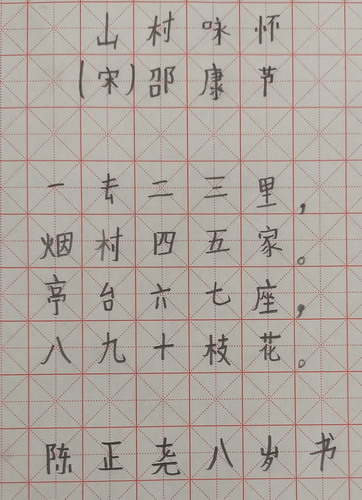 山村咏怀
(宋)邵康节
一去二三里，
烟村四五家。
亭台六七座，
八九十枝花。
陈正尧八岁书